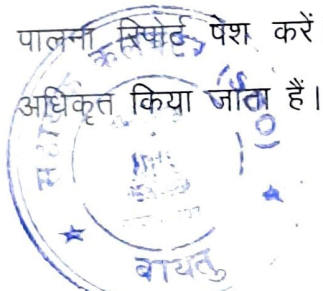 पालना रिपोर्ट पेश करें
अधिकृत किया जाता हैं।
बायतु